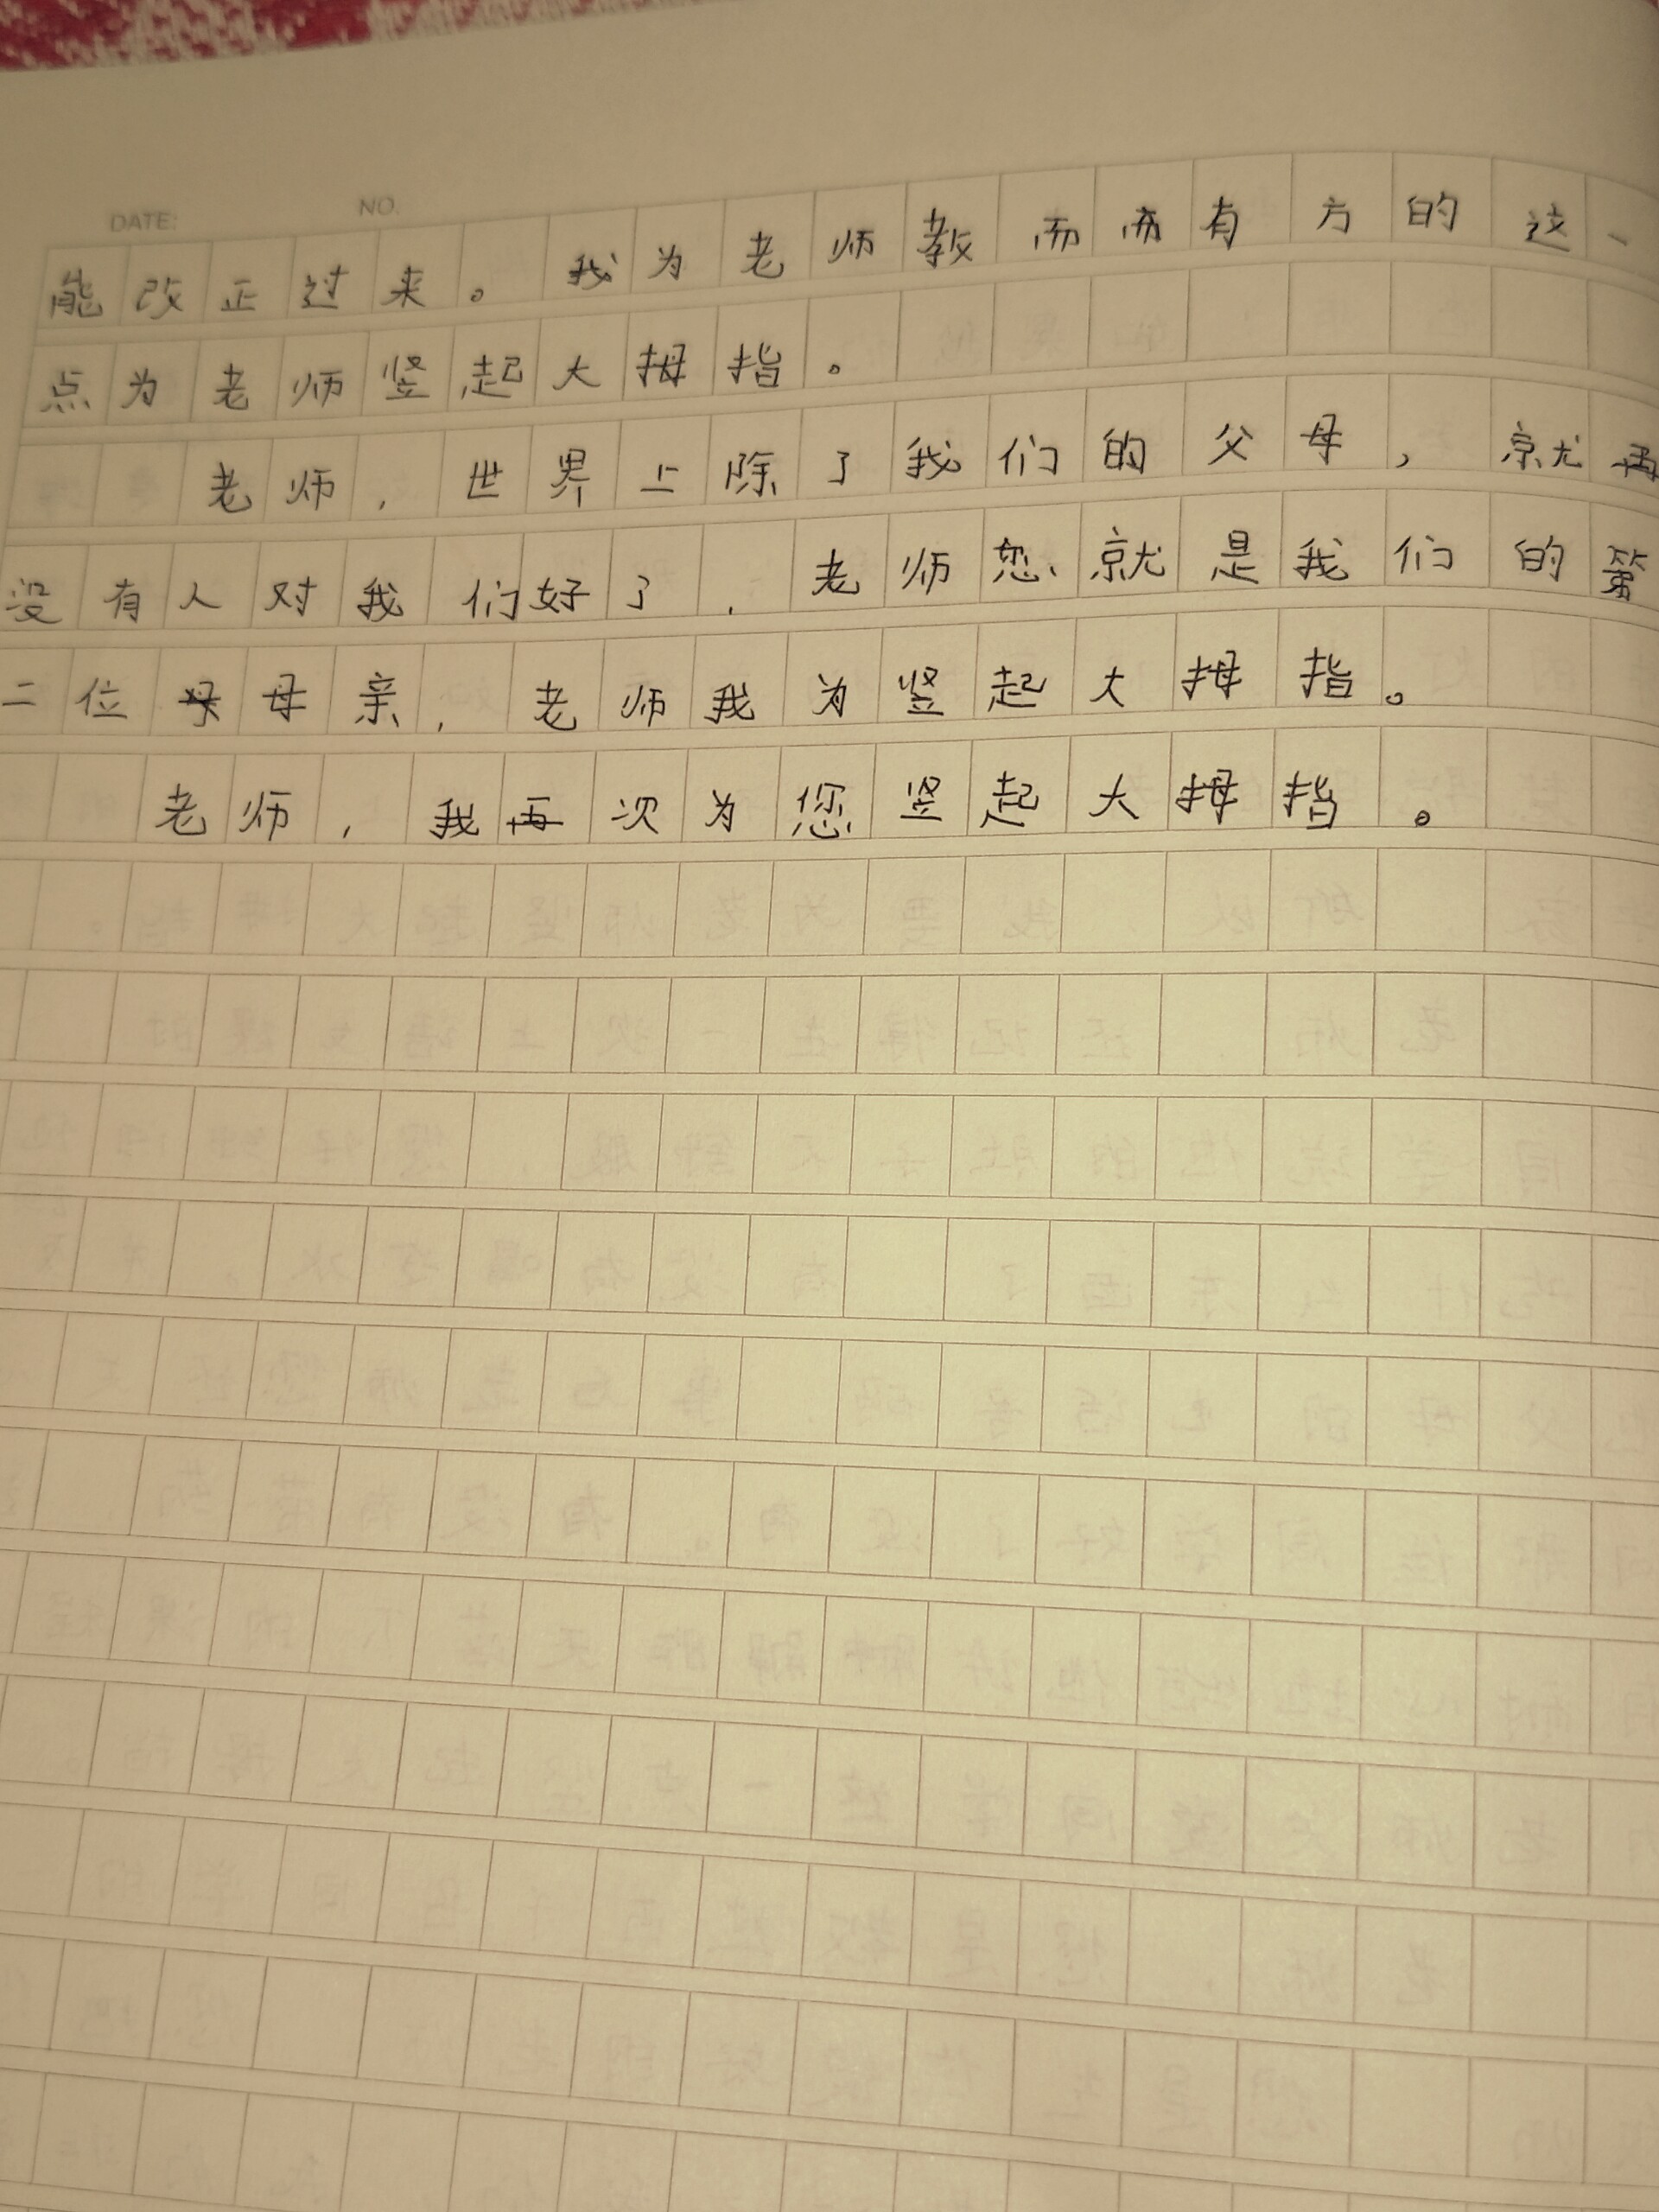 DATE: NO.
能改正过来。我为老师教而而有方的这一
点为老师竖起大拇指。
老师,世界上除了我们的父母,就再
没有人对我们好了,老师您就是我们的第
二位母亲,老师我为竖起大拇指。
老师,我再次为您竖起大拇指。